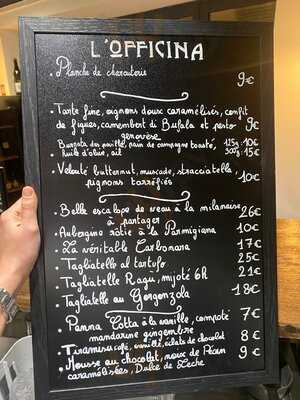 L'OFFICINA
. Planche de charcuterie 9€
. Tarte fine, oignons doux caramélisés, confit
de figues, camembert di Bufala et pesto
genovese 9€
. Burrata des pouilles, pain de campagne toasté, 125g 10€
huile d'olive, ail 500g 15€
. Velouté butternut, muscade, stracciatella,
pignons torréfiés 10€
. Belle escalope de veau à la milanaise
à partager 26€
. Aubergine rôtie à la Parmigiana 10€
. La véritable Carbonara 17€
. Tagliatelle al tartufo 25€
. Tagliatelle Ragu, mijoté 6h 21€
. Tagliatelle au Gorgonzola 18€
. Panna Cotta à la vanille, compoté
mandarine gingembre 7€
. Tiramisu café, vanillé, éclats de chocolat 8€
. Mousse au chocolat, noix de Pécan
caramélisées, Dulce de Leche 9€